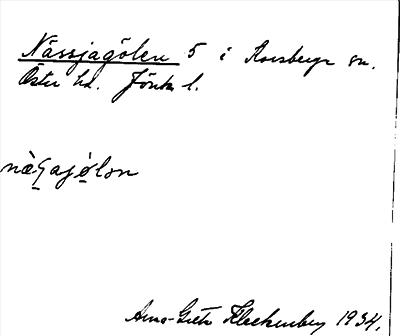 Nässjagölen 5 i Korsberga sn.
Öster hd. Jönk. l.
nä̀ʕajø̀lon
Anna-Greta Fleckenberg 1934.